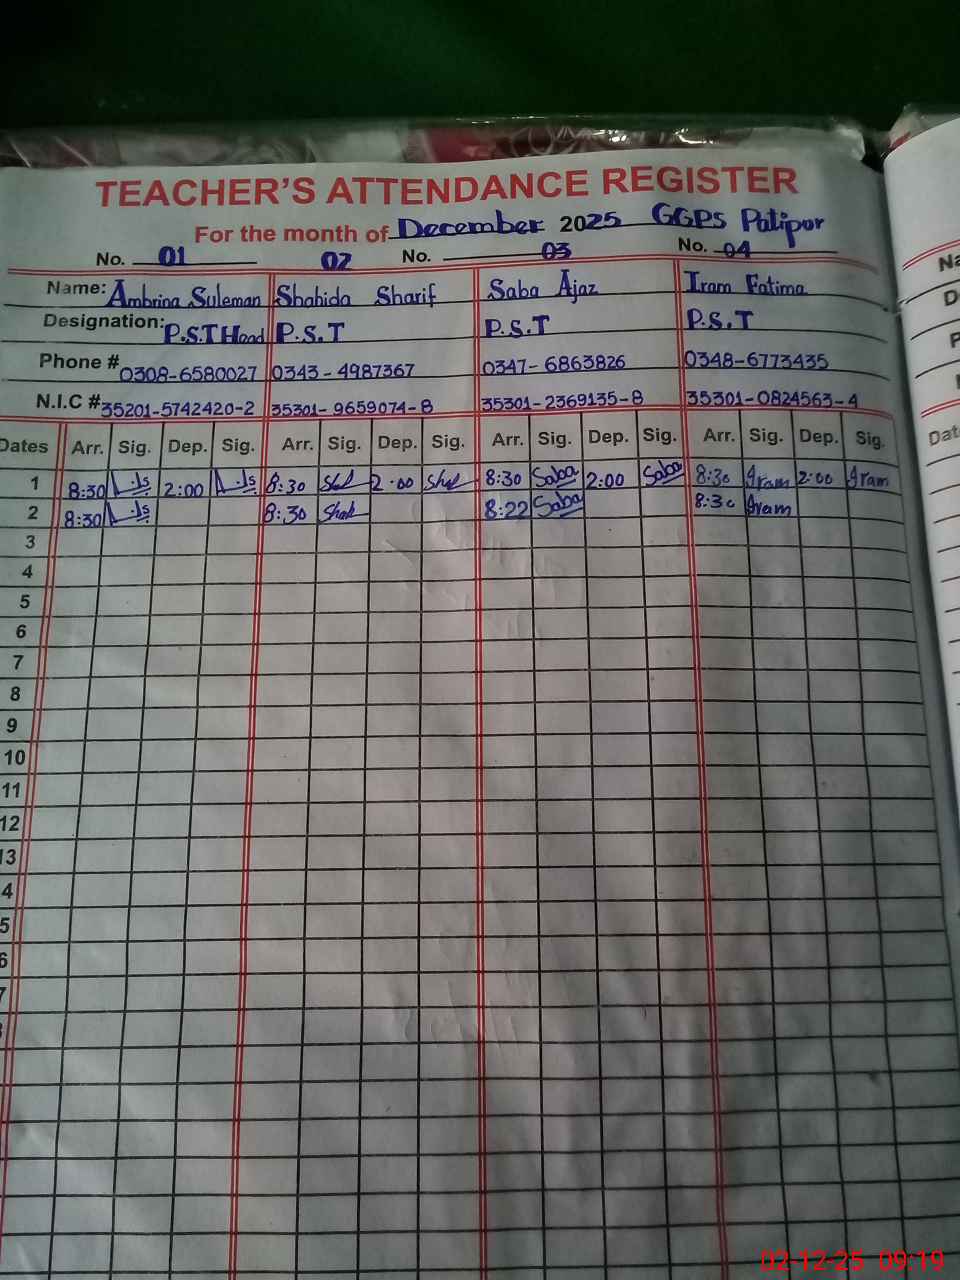 TEACHER'S ATTENDANCE REGISTER
For the month of December 2025 GGPS Patipor
No. 01 02 No. 03 No. 04
Name: Ambrina Suleman Shahida Sharif Saba Ajaz Iram Fatima
Designation: P.S.T Head P.S.T P.S.T P.S.T
Phone # 0308-6580027 0343-4987367 0347-6863826 0348-6773435
N.I.C # 35201-5742420-2 35301-9659074-8 35301-2369135-8 35301-0824563-4
Dates Arr. Sig. Dep. Sig. Arr. Sig. Dep. Sig. Arr. Sig. Dep. Sig. Arr. Sig. Dep. Sig.
1 8:30 2:00 8:30 2:00 8:30 Saba 2:00 Saba 8:30 Iram 2:00 Iram
2 8:30 8:30 8:22 Saba 8:30 Iram
3
4
5
6
7
8
9
10
11
12
13
4
5
6
7
Na
D
P
N
Dat
02-12-25 09:19